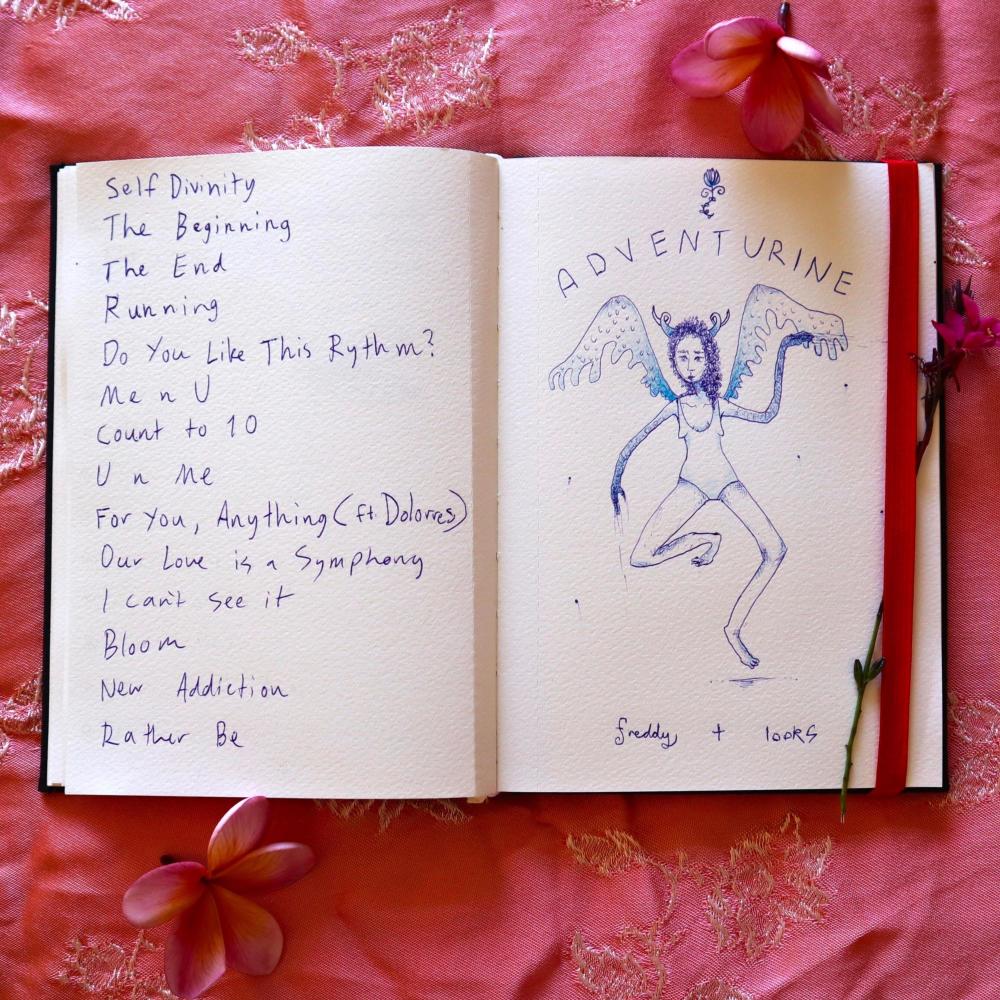 Self Divinity
The Beginning
The End
Running
Do You Like This Rythm?
Me n U
Count to 10
U n Me
For You, Anything (ft Dolorres)
Our Love is a Symphony
I can't see it
Bloom
New Addiction
Rather Be
ADVENTURINE
freddy + looks